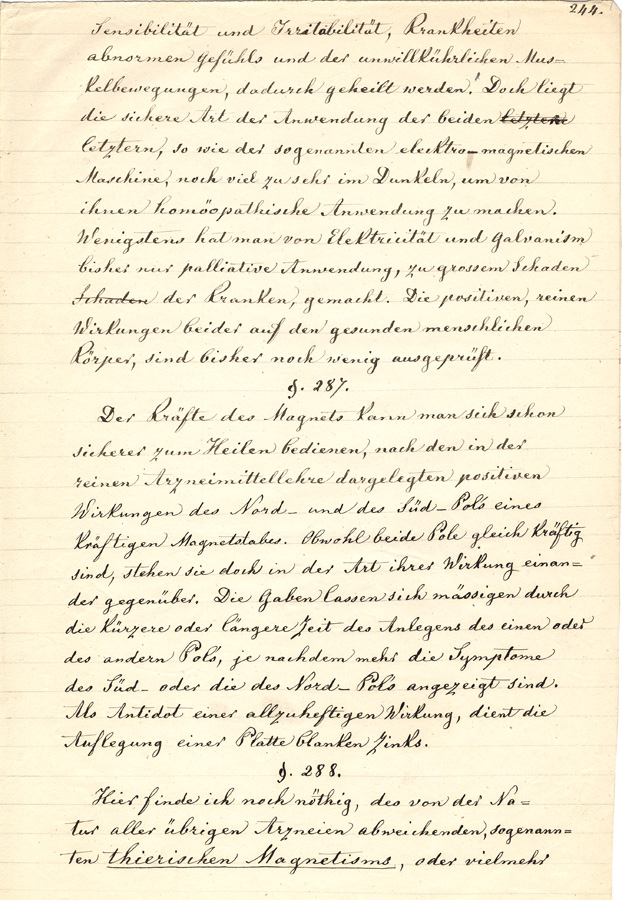 244.
Sensibilität und Irritabilität, Krankheiten
abnormen Gefühls und der unwillkührlichen Mus=
kelbewegungen, dadurch geheilt werden! Doch liegt
die sichere Art der Anwendung der beiden letztern
letztern, so wie der sogenannten elecktro-magnetischen
Maschine, noch viel zu sehr im Dunkeln, um von
ihnen homöopathische Anwendung zu machen.
Wenigstens hat man von Elektricität und Galvanism
bisher nur palliative Anwendung, zu grossem Schaden
Schaden der Kranken, gemacht. Die positiven, reinen
Wirkungen beider auf den gesunden menschlichen
Körper, sind bisher noch wenig ausgeprüft.
§. 287.
Der Kräfte des Magnets kann man sich schon
sicherer zum Heilen bedienen, nach den in der
reinen Arzneimittellehre dargelegten positiven
Wirkungen des Nord- und des Süd-Pols eines
kräftigen Magnetstabes. Obwohl beide Pole gleich kräftig
sind, stehen sie doch in der Art ihrer Wirkung einan=
der gegenüber. Die Gaben lassen sich mässigen durch
die kürzere oder längere Zeit des Anlegens des einen oder
des andern Pols, je nachdem mehr die Symptome
des Süd- oder die des Nord-Pols angezeigt sind.
Als Antidot einer allzuheftigen Wirkung, dient die
Auflegung einer Platte blanken Zinks.
§. 288.
Hier finde ich noch nöthig, des von der Na=
tur aller übrigen Arzneien abweichenden, sogenann=
ten thierischen Magnetisms, oder vielmehr